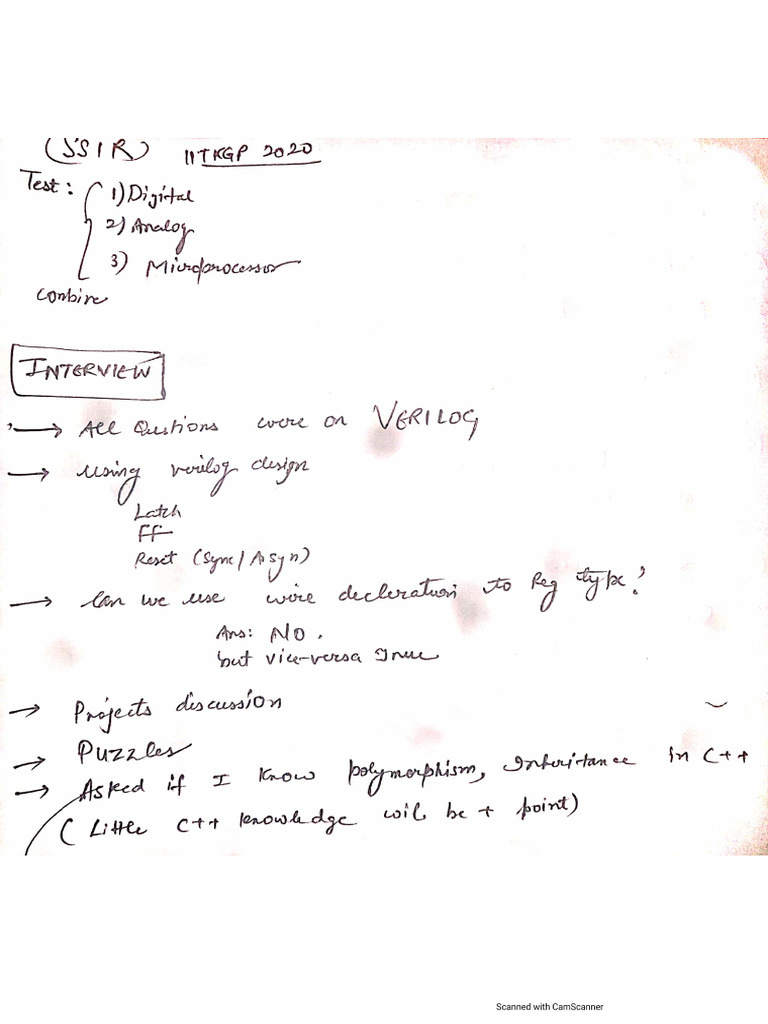 (SSIR) IITKGP 2020
Test: 1) Digital
2) Analog
3) Microprocessor
Combine
INTERVIEW
→ All Qustions were on VERILOG
→ using verilog design
Latch
FF
Reset (Sync/Asyn)
→ Can we use wire decleration to Reg type?
Ans: NO.
but vice-versa True
→ Projects discussion
→ Puzzles
→ Asked if I know polymorphism, Inheritance in C++
(Little C++ knowledge will be + point)
Scanned with CamScanner